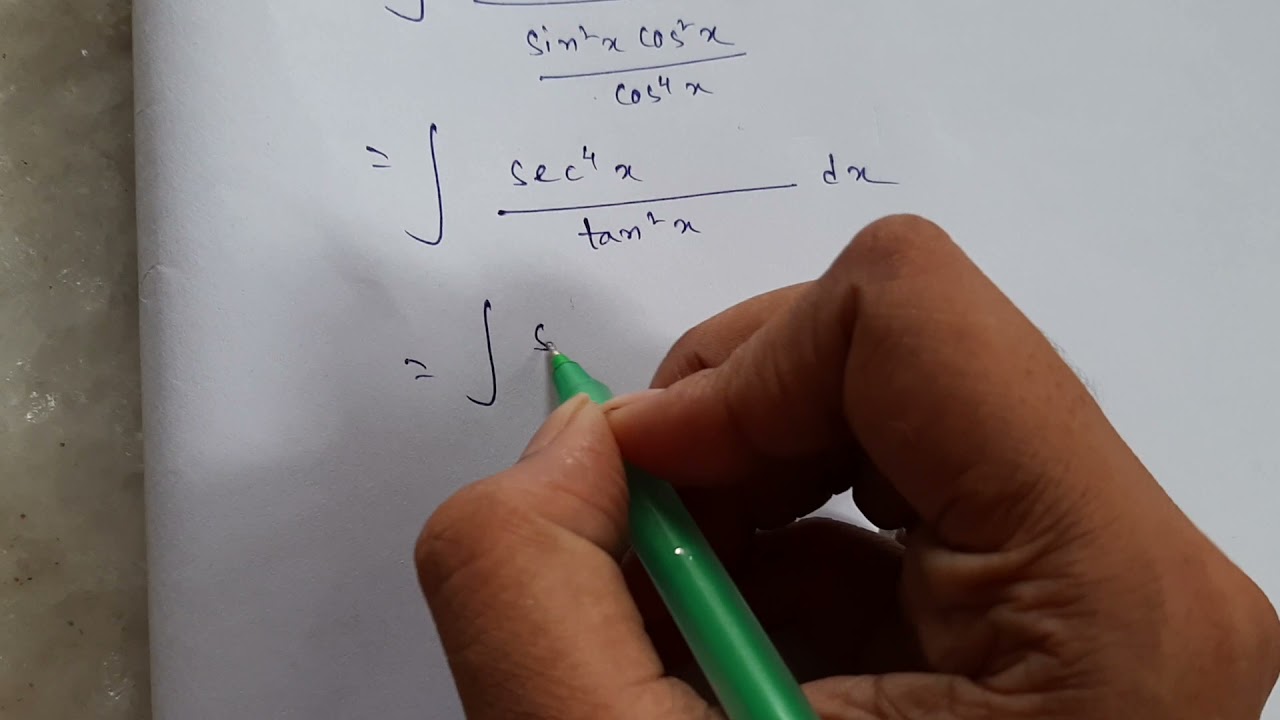 ∫
sin²x cos²x
cos⁴x
= ∫ sec⁴x dx
tan²x
= ∫ s